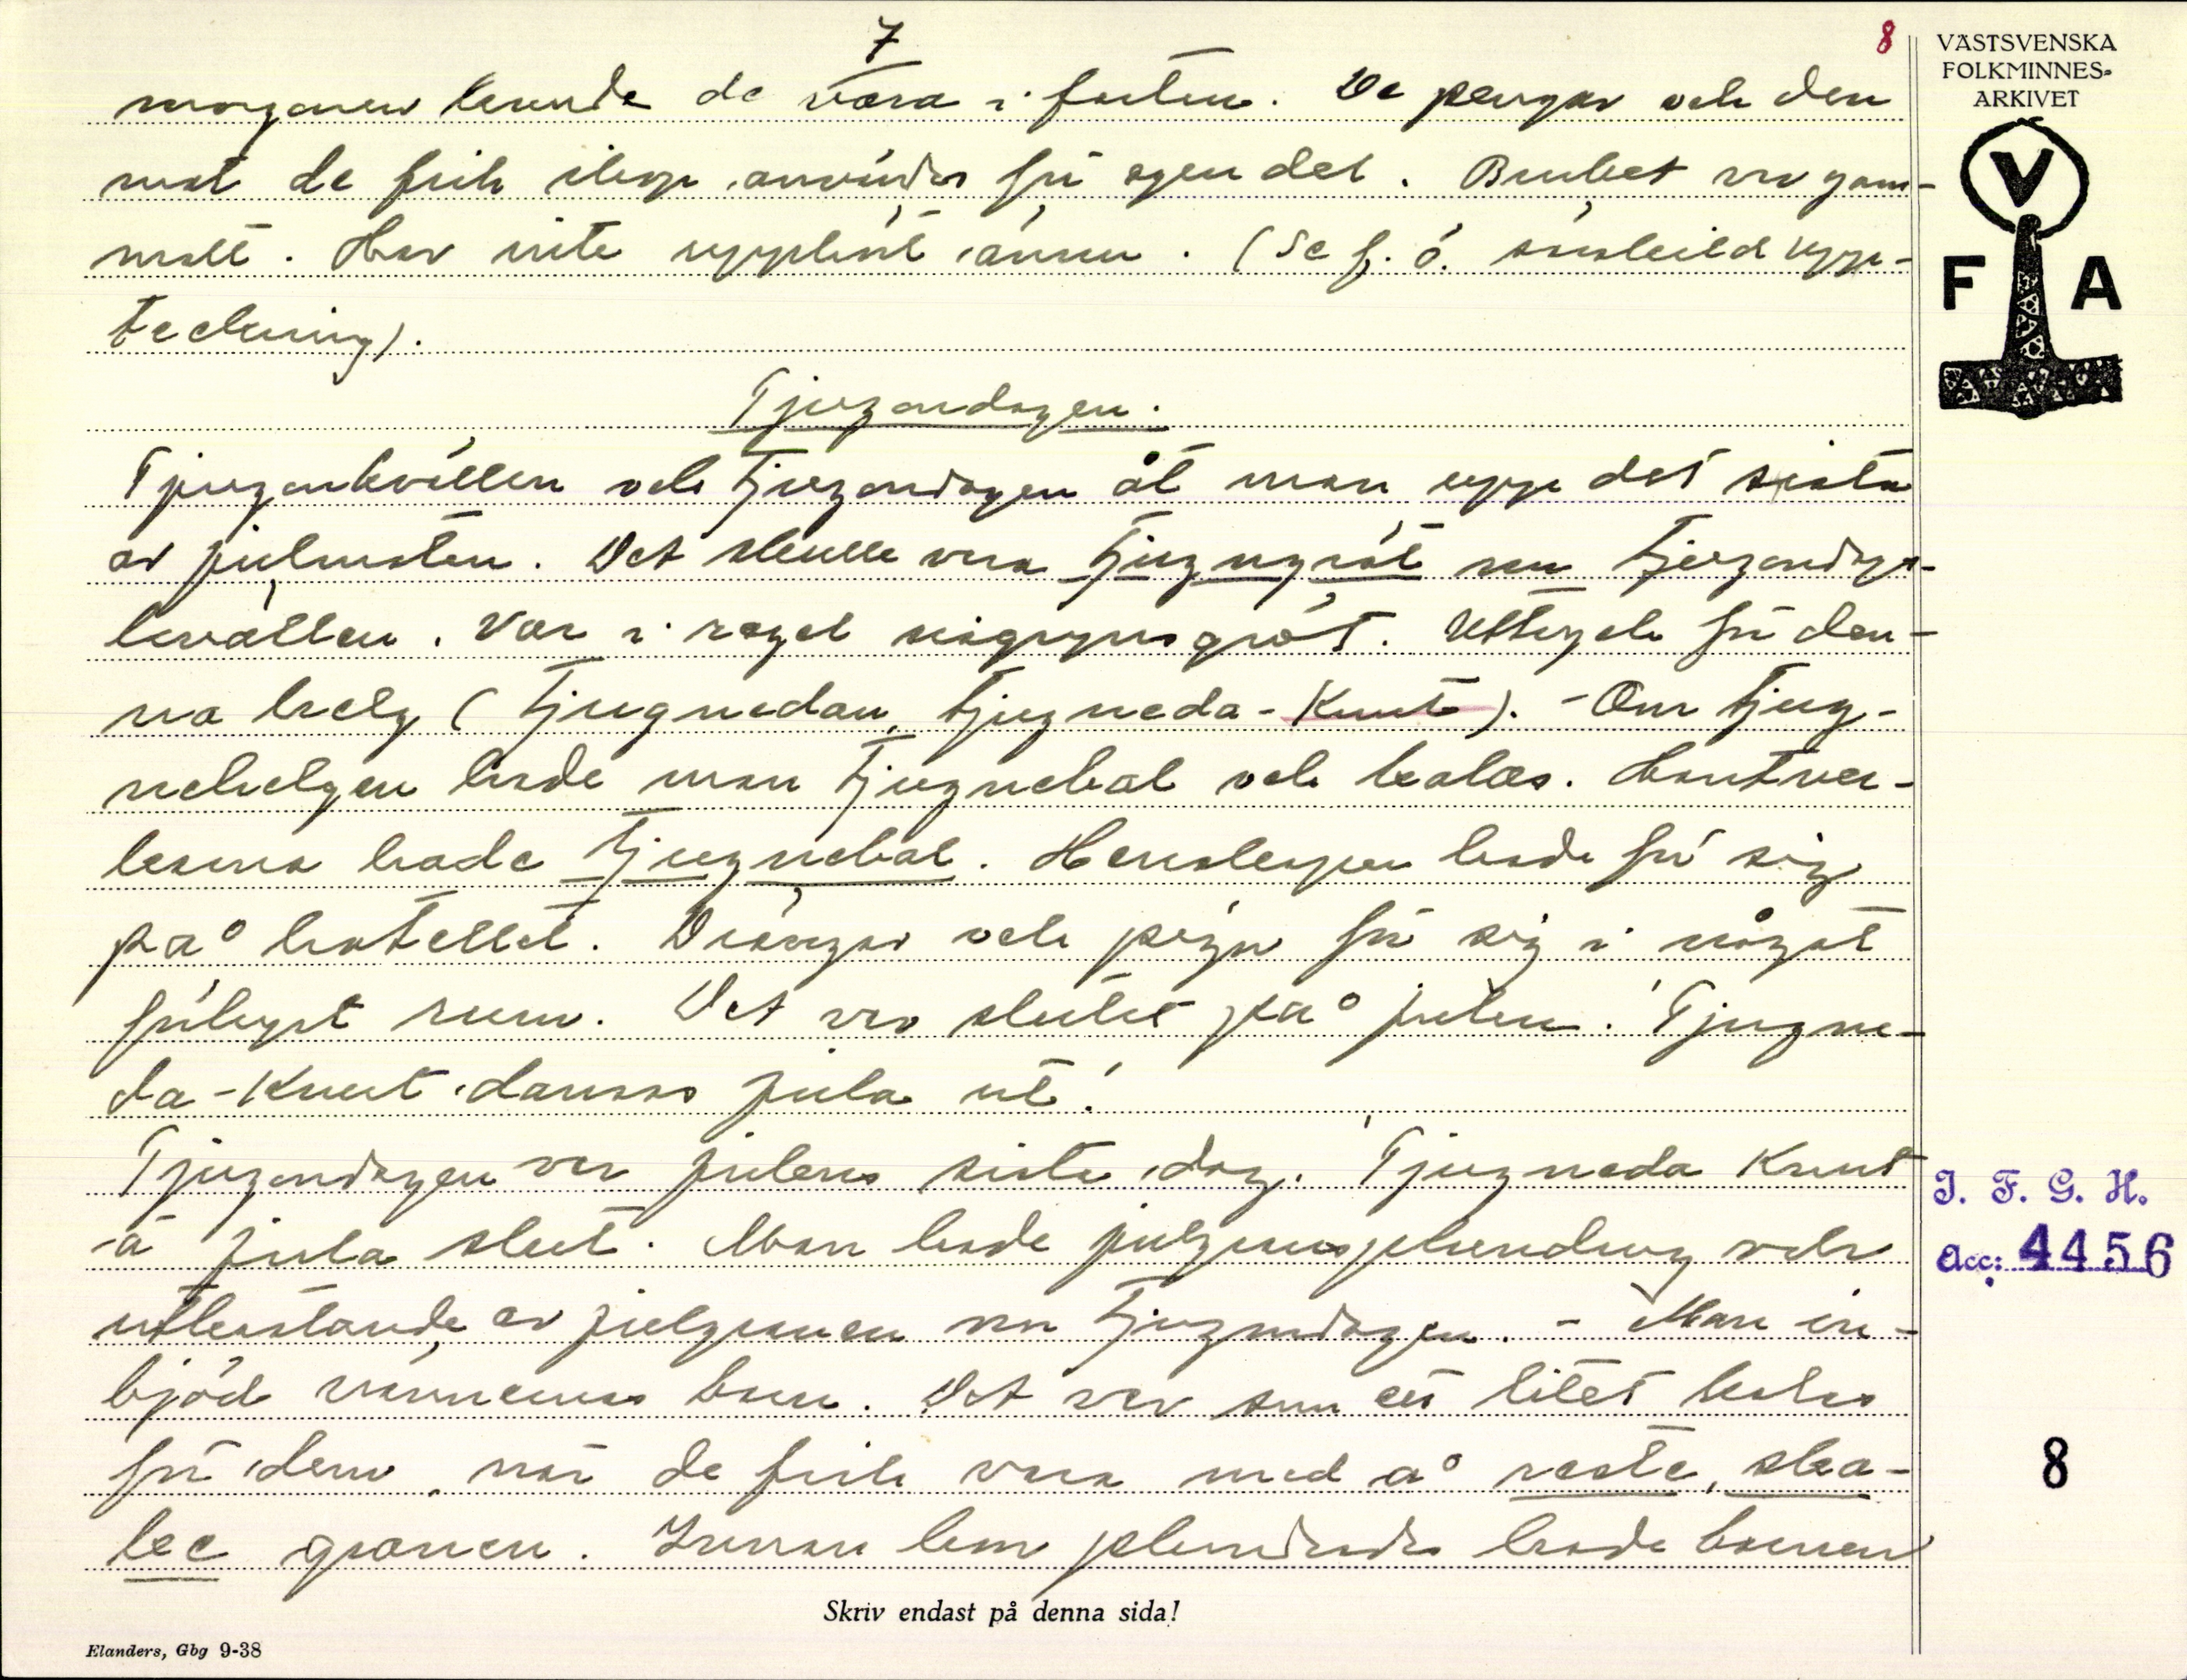 7
8
VÄSTSVENSKA
FOLKMINNES-
ARKIVET
V
F A
morgonen kunde de vara i farten. De pengar och den
mat de fick ihop användes för egen del. Bruket var gam-
malt. Har inte upphört ännu. (Se f. ö. särskild upp-
teckning).
Tjugondagen.
Tjugonkvällen och tjugondagen åt man upp det sista
av julmaten. Det skulle vara tjugnygröt om tjugondags-
kvällen. Var i regel risgrynsgröt. Uttryck för den-
na helg (tjugnedan, tjugneda-Knut). - Om tjug-
nehelgen hade man tjugnebal och kalas. Hantver-
karna hade tjugnebal. Herrskapen hade för sig
på hotellet. Drängar och pigor för sig i något
förhyrt rum. Det var slutet på julen. "Tjugne-
da-Knut dansas jula ut."
Tjugondagen var julens sista dag. "Tjugneda Knut
ä jula slut." Man hade julgransplundring och
utkastande av julgranen om tjugondagen. - Man in-
bjöd vännernas barn. Det var som ett litet kalas
för dem, när de fick vara med å raste, ska-
ke granen. Innan kom plundrade hade barnen
J. F. G. H.
Acc: 4456
8
Skriv endast på denna sida!
Elanders, Gbg 9-38